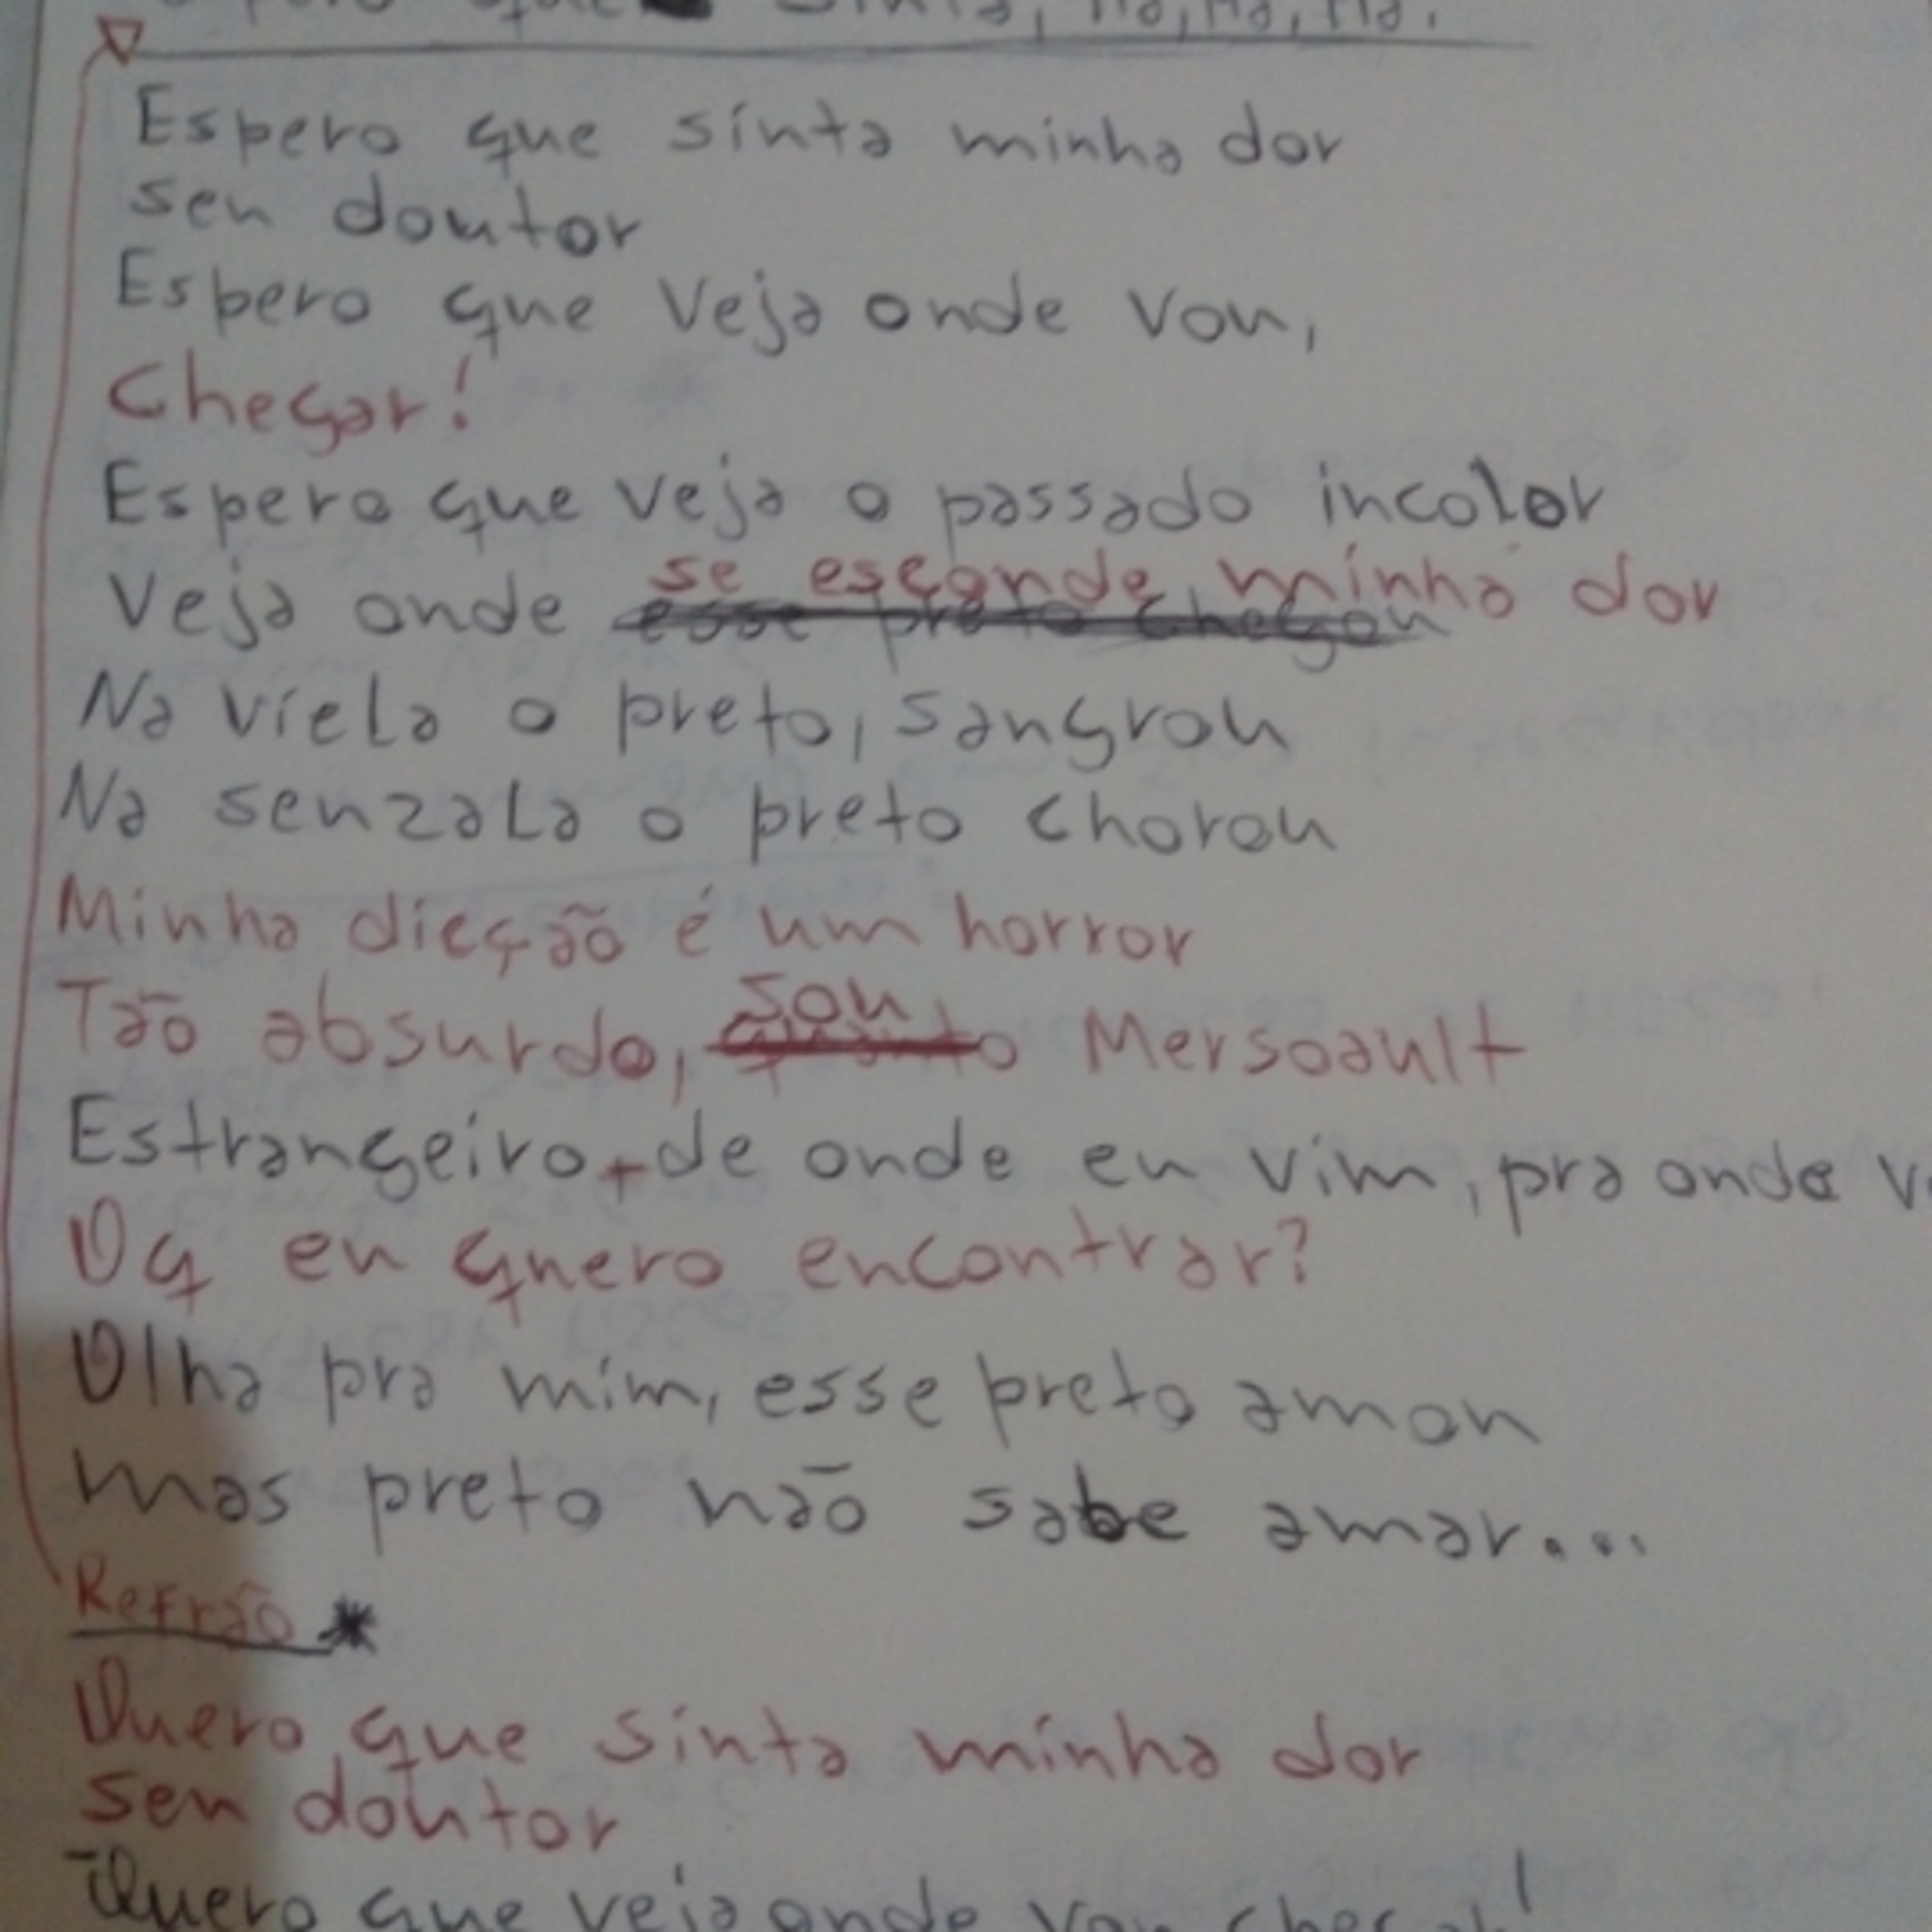 sinta, Há, Há, Há.
Espero que sinta minha dor
seu doutor
Espero que veja onde vou,
Chegar!
Espero que veja o passado incolor
se esconde minha dor
Veja onde esse preto chegou
Na viela o preto, sangrou
Na senzala o preto chorou
Minha dicção é um horror
sou
Tão absurdo, quanto Mersoault
Estrangeiro + de onde eu vim, pra onde v
Oq eu quero encontrar?
Olha pra mim, esse preto amou
mas preto não sabe amar...
Refrão *
Quero que sinta minha dor
seu doutor
Quero que veja onde vou chegar!